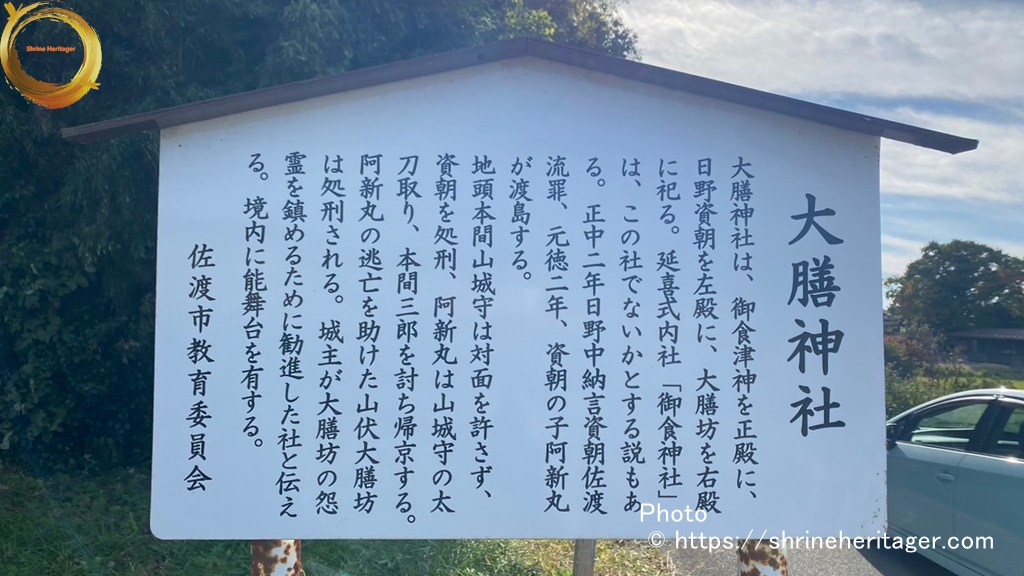 Shrine Heritager
大膳神社
大膳神社は、御食津神を正殿に、
日野資朝を左殿に、大膳坊を右殿
に祀る。延喜式内社「御食神社」
は、この社でないかとする説もあ
る。正中二年日野中納言資朝佐渡
流罪、元徳二年、資朝の子阿新丸
が渡島する。
地頭本間山城守は対面を許さず、
資朝を処刑、阿新丸は山城守の太
刀取り、本間三郎を討ち帰京する。
阿新丸の逃亡を助けた山伏大膳坊
は処刑される。城主が大膳坊の怨
霊を鎮めるために勧進した社と伝え
る。境内に能舞台を有する。
佐渡市教育委員会
Photo
© https://shrineheritager.com